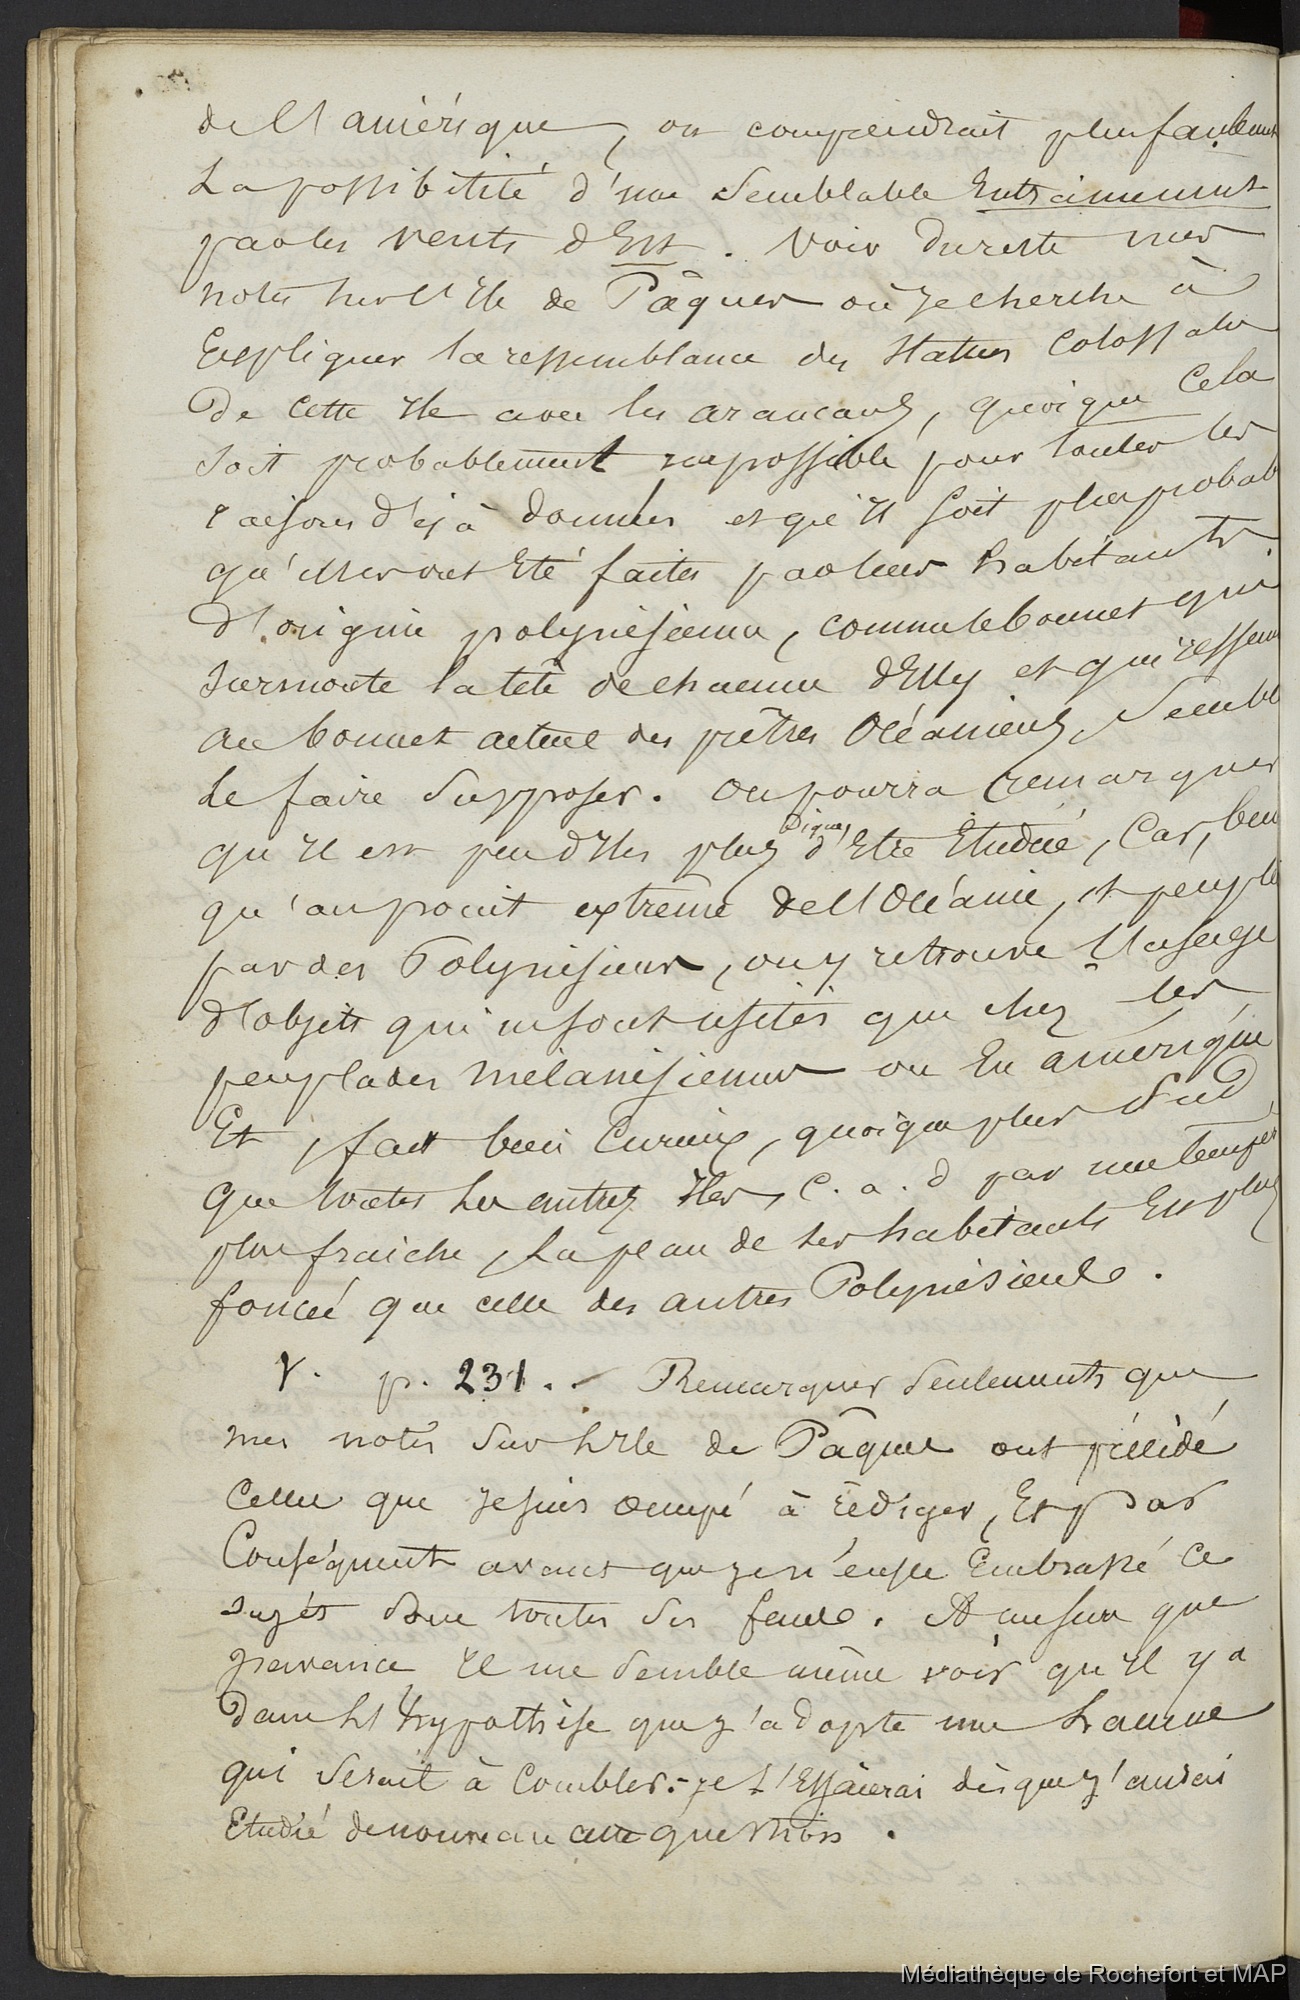 de l'amérique, on comprendrait plus facilement
la possibilité d'une semblable Entrainement
par les vents d'Est. Voir du reste mes
notes sur l'Ile de Pâques où je cherche à
Expliquer la ressemblance des statues colossales
de cette Ile avec les araucans, quoique cela
soit probablement impossible pour toutes les
raisons déjà données et qu'il soit plus probab
qu'elles ont Eté faites par leurs habitants
d'origine polynésienne, comme le bonnet qui
surmonte la tête de chacune d'Elles et qui ressem
au bonnet actuel des prêtres Océaniens, sembl
le faire supposer. On pourra remarquer
qu'il est peu d'Iles plus dignes d'Etre Etudié, Car, bien
qu'au point extrême de l'Océanie, et peuplé
par des Polynésiens, on y retrouve l'usage
d'objets qui ne sont usités que chez les
peuplades mélanésiennes ou En amérique
Et, fait bien curieux, quoique plus Sud
que toutes les autres Iles, c. a. d par une temper
plus fraiche, la peau de ses habitants Est plus
foncée que celle des autres Polynésiens.
V. p. 231. - Remarquer seulements que
mes notes sur l'Ile de Pâques ont précédé
celles que je suis occupé à rédiger, Et par
Conséquent avant que je n'eusse Embrassé ce
sujet dans toutes ses faces. A mesure que
j'avance il me semble même voir qu'il y a
dans l'hypothèse que j'adopte une lacune
qui serait à combler. - je l'Essaierai dès que j'aurai
Etudié de nouveau cette question.
Médiathèque de Rochefort et MAP